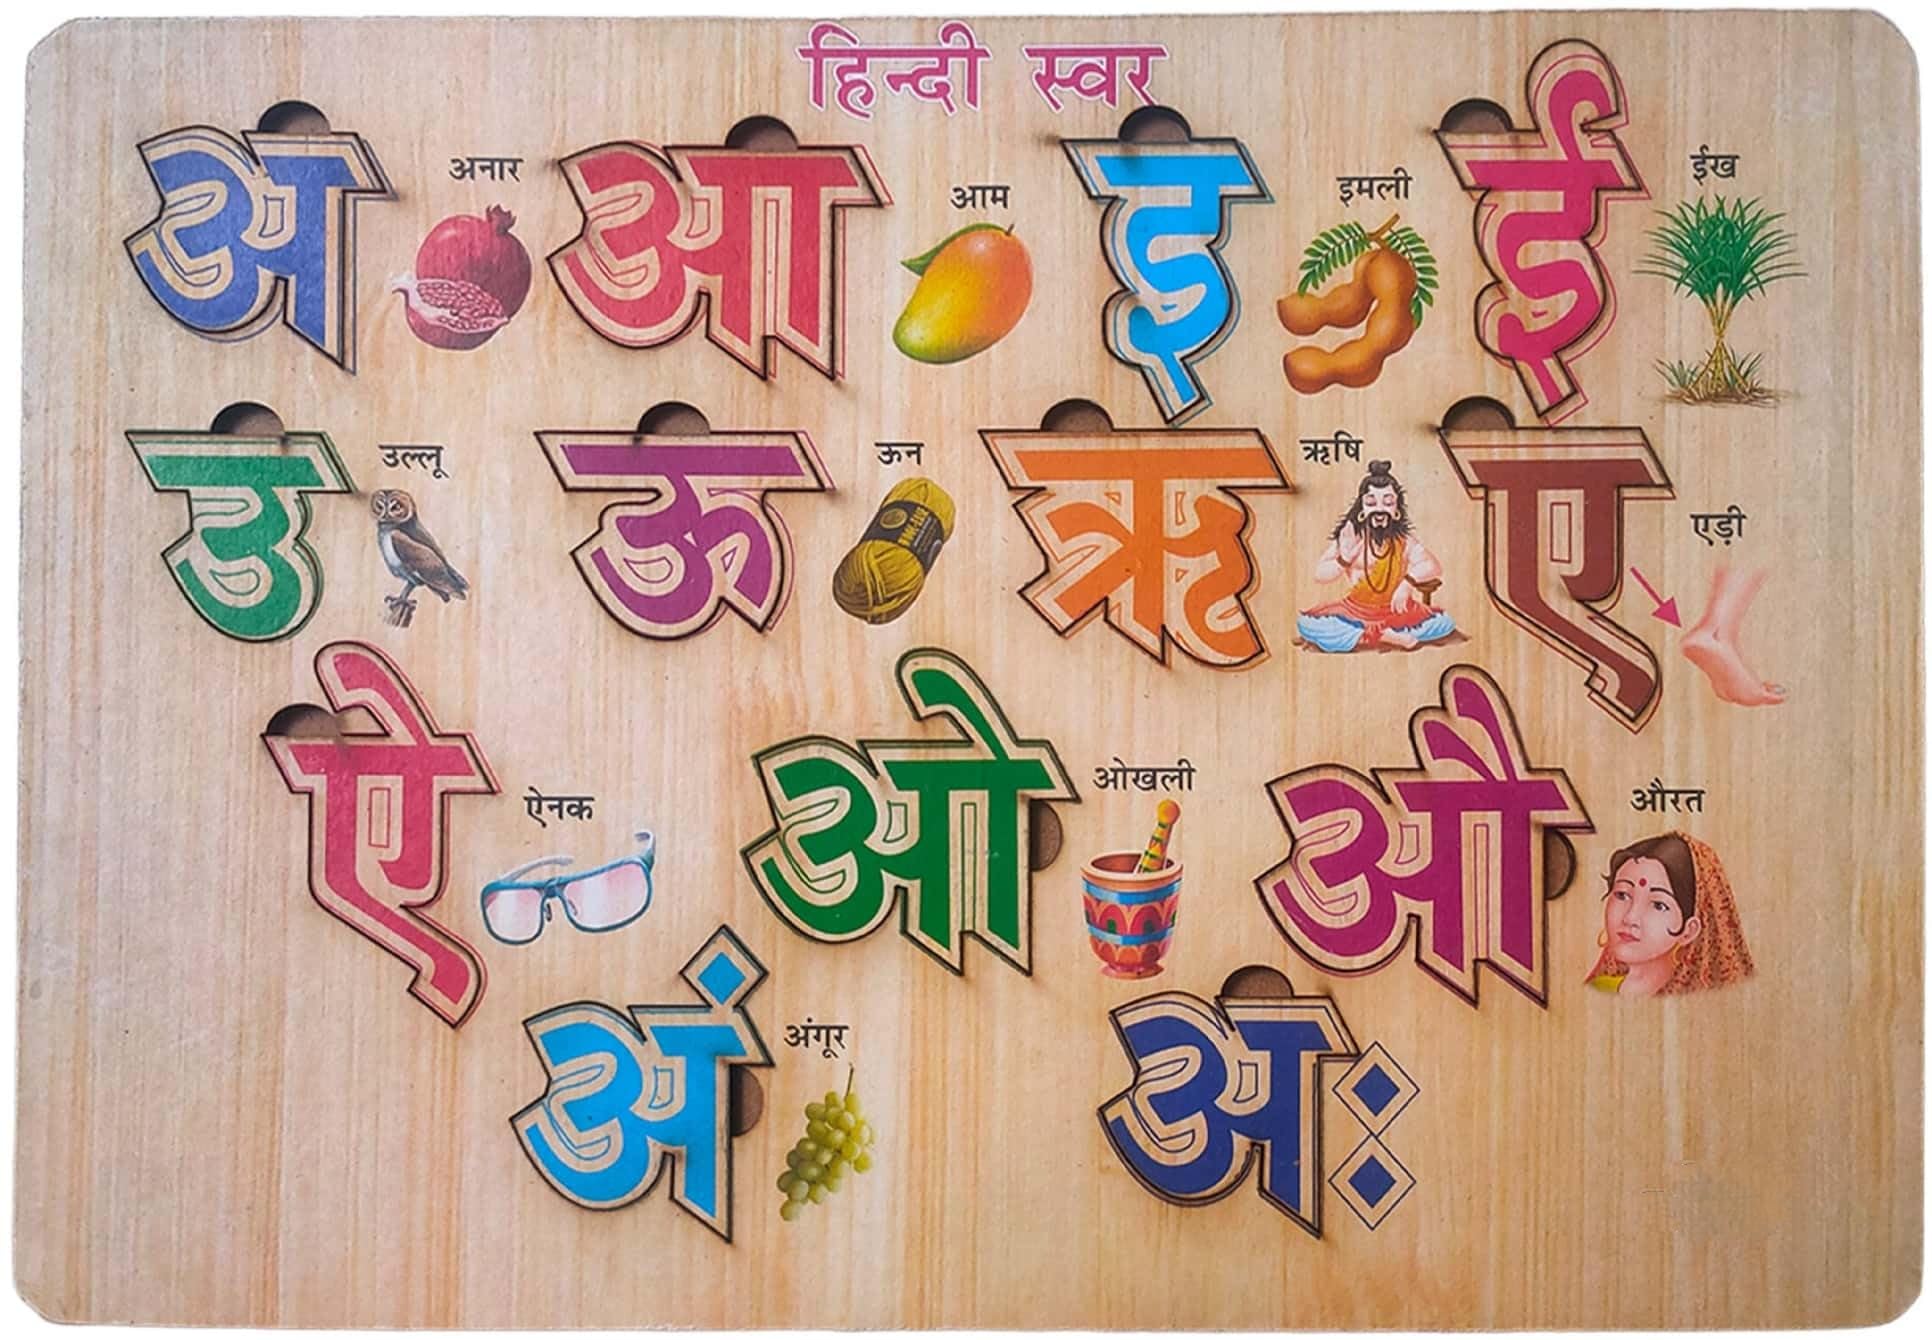 हिन्दी स्वर
अ अनार आ आम इ इमली ई ईख
उ उल्लू ऊ ऊन ऋ ऋषि ए एड़ी
ऐ ऐनक ओ ओखली औ औरत
अं अंगूर अः